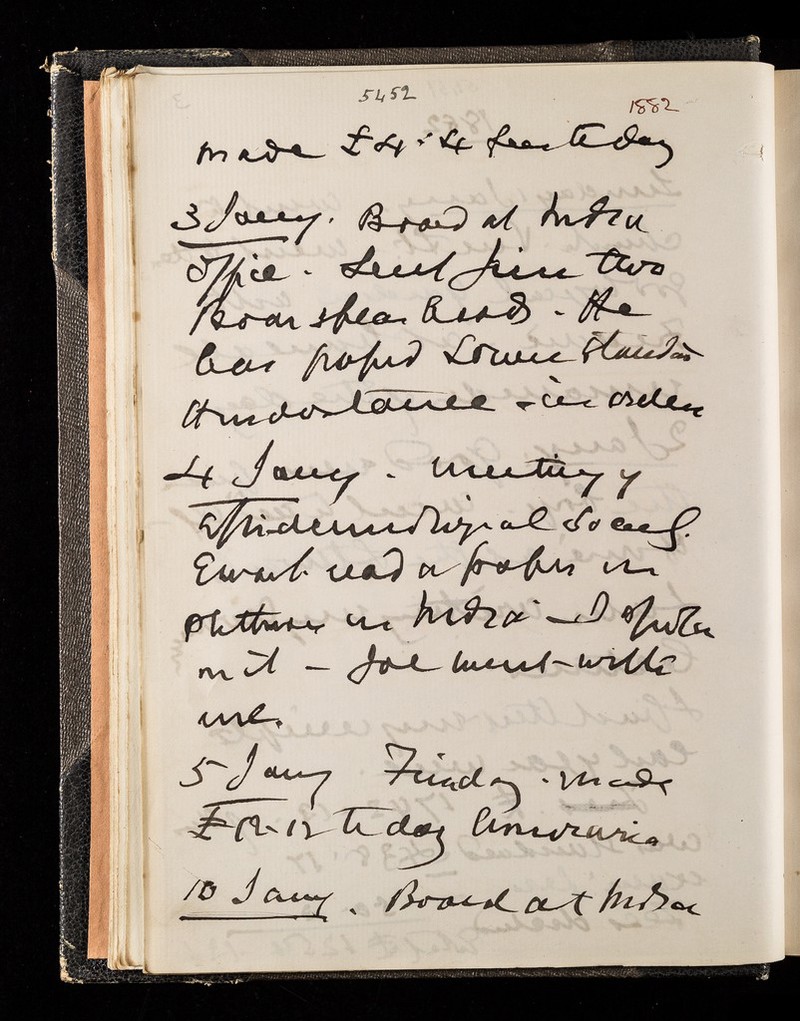 5452
1882
made £4.4 fees to day
3 Jany. Board at India
Office. Sent him two
Boar spear heads. He
has passed Lower Standar
Hindostanee - in orders
4 Jany. Meeting of
Epidemiological Society.
Ewart read a paper on
Phthisis in India - I spoke
on it - Joe went with
me.
5 Jany Friday. made
£12.12 to day
10 Jany. Board at India